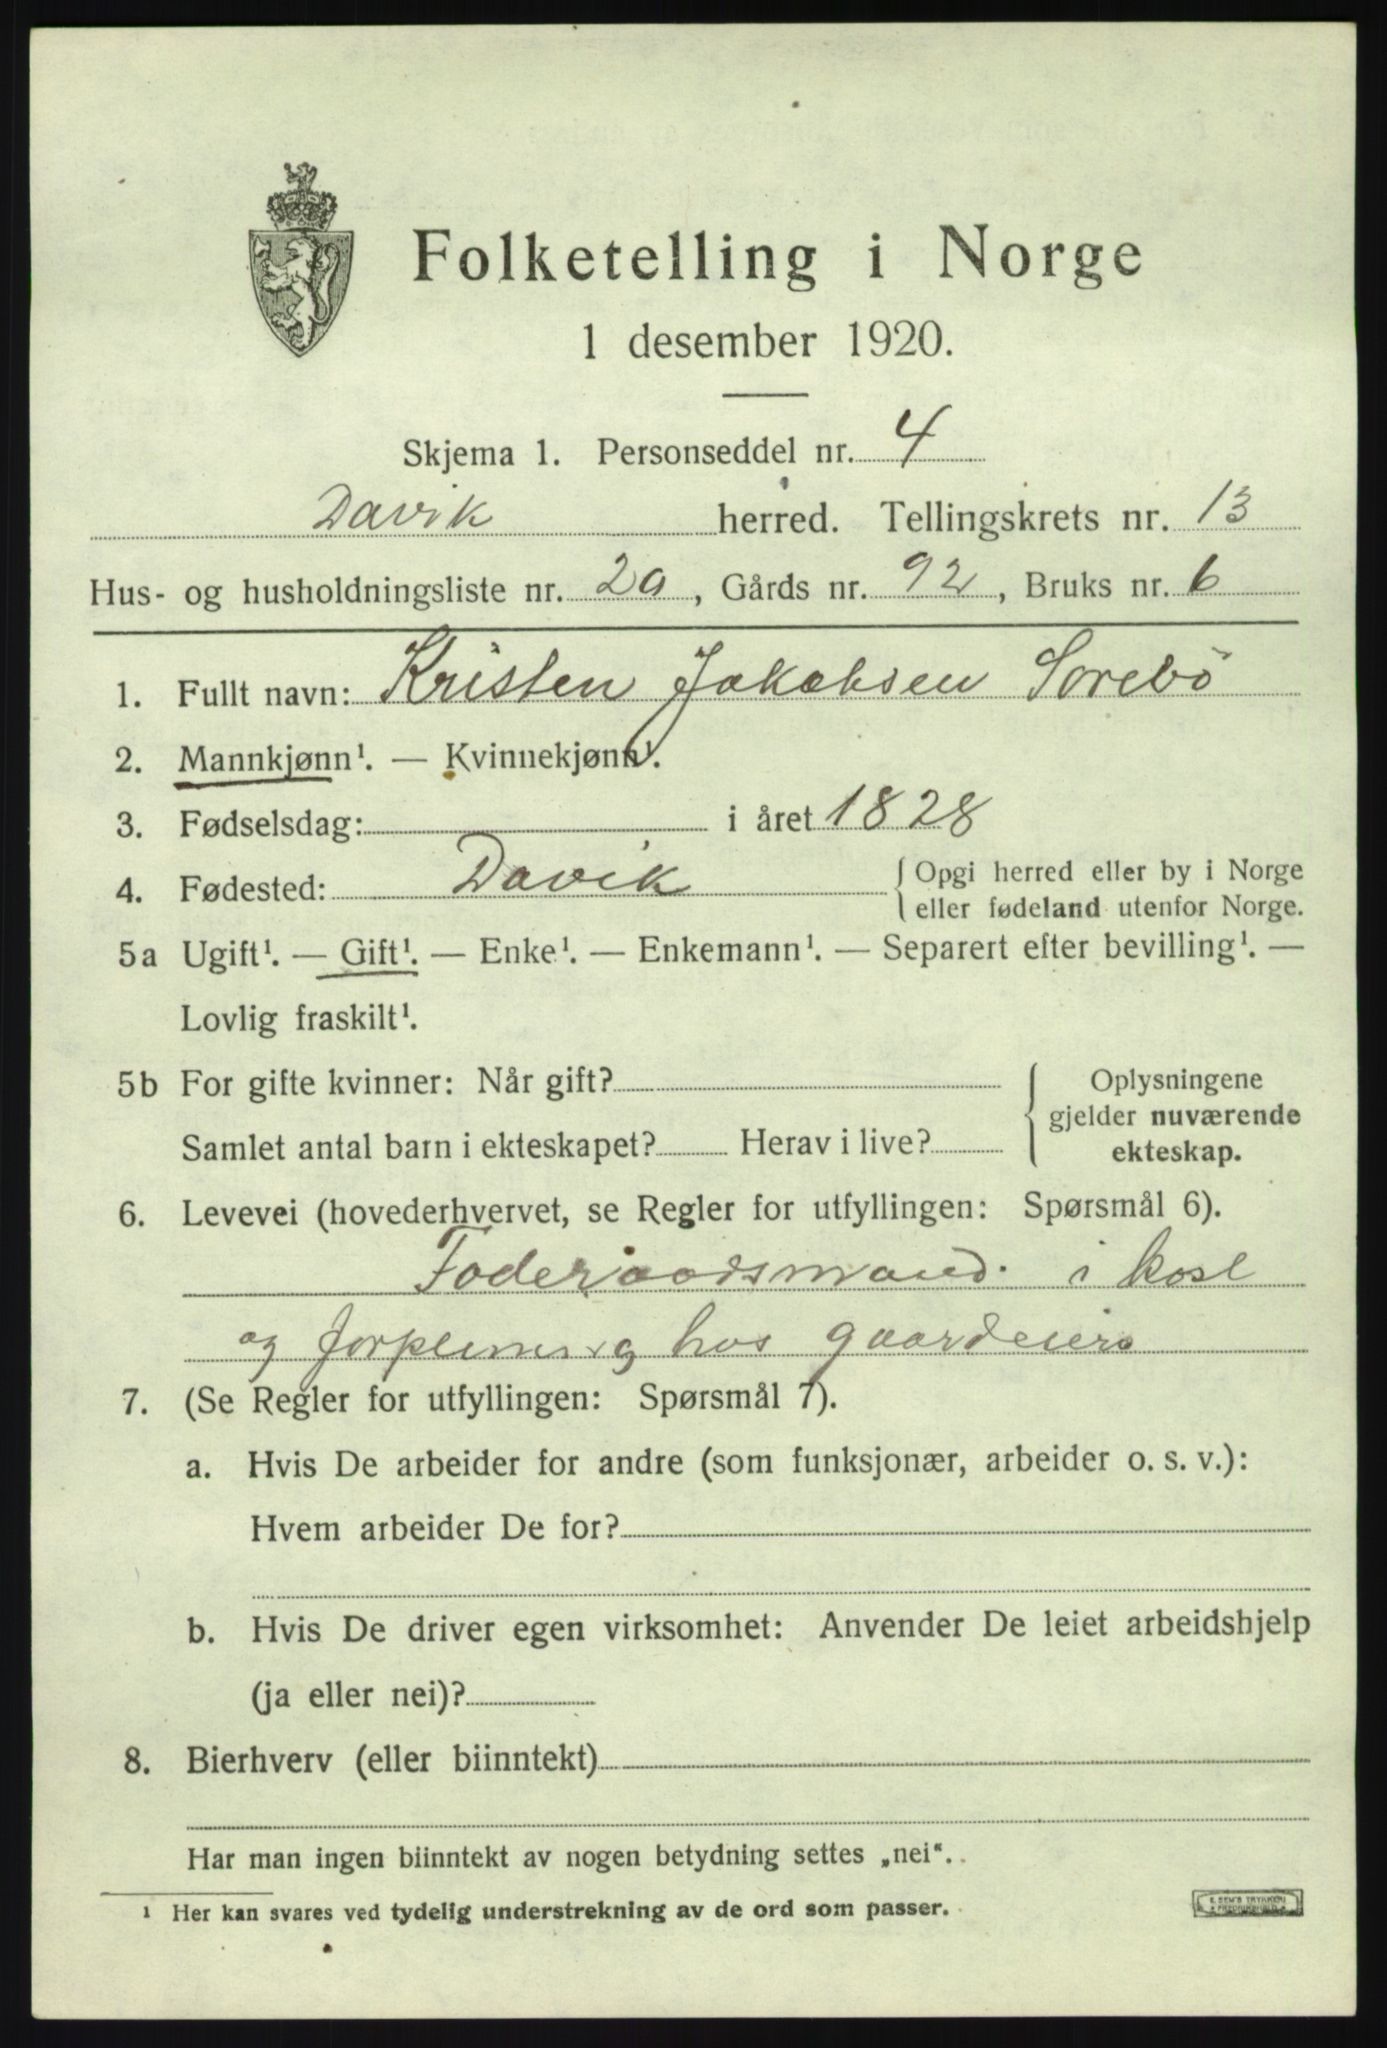 Folketelling i Norge
1 desember 1920.
Skjema 1. Personseddel nr. 4
Davik herred. Tellingskrets nr. 13
Hus- og husholdningsliste nr. 20, Gårds nr. 92, Bruks nr. 6
1. Fullt navn: Kristen Jakobsen Sorebö
2. Mannkjønn¹. — Kvinnekjønn¹.
3. Fødselsdag: i året 1828
4. Fødested: Davik { Opgi herred eller by i Norge
eller fødeland utenfor Norge.
5a Ugift¹. — Gift¹. — Enke¹. — Enkemann¹. — Separert efter bevilling¹. —
Lovlig fraskilt¹.
5b For gifte kvinner: Når gift? { Oplysningene
gjelder nuværende
Samlet antal barn i ekteskapet? Herav i live?
ekteskap.
6. Levevei (hovederhvervet, se Regler for utfyllingen: Spørsmål 6).
Foderaadsmand. i kost
og forpleining hos gaardeiers
7. (Se Regler for utfyllingen: Spørsmål 7).
a. Hvis De arbeider for andre (som funksjonær, arbeider o. s. v.):
Hvem arbeider De for?
b. Hvis De driver egen virksomhet: Anvender De leiet arbeidshjelp
(ja eller nei)?
8. Bierhverv (eller biinntekt)
Har man ingen biinntekt av nogen betydning settes „nei“.
¹ Her kan svares ved tydelig understrekning av de ord som passer.